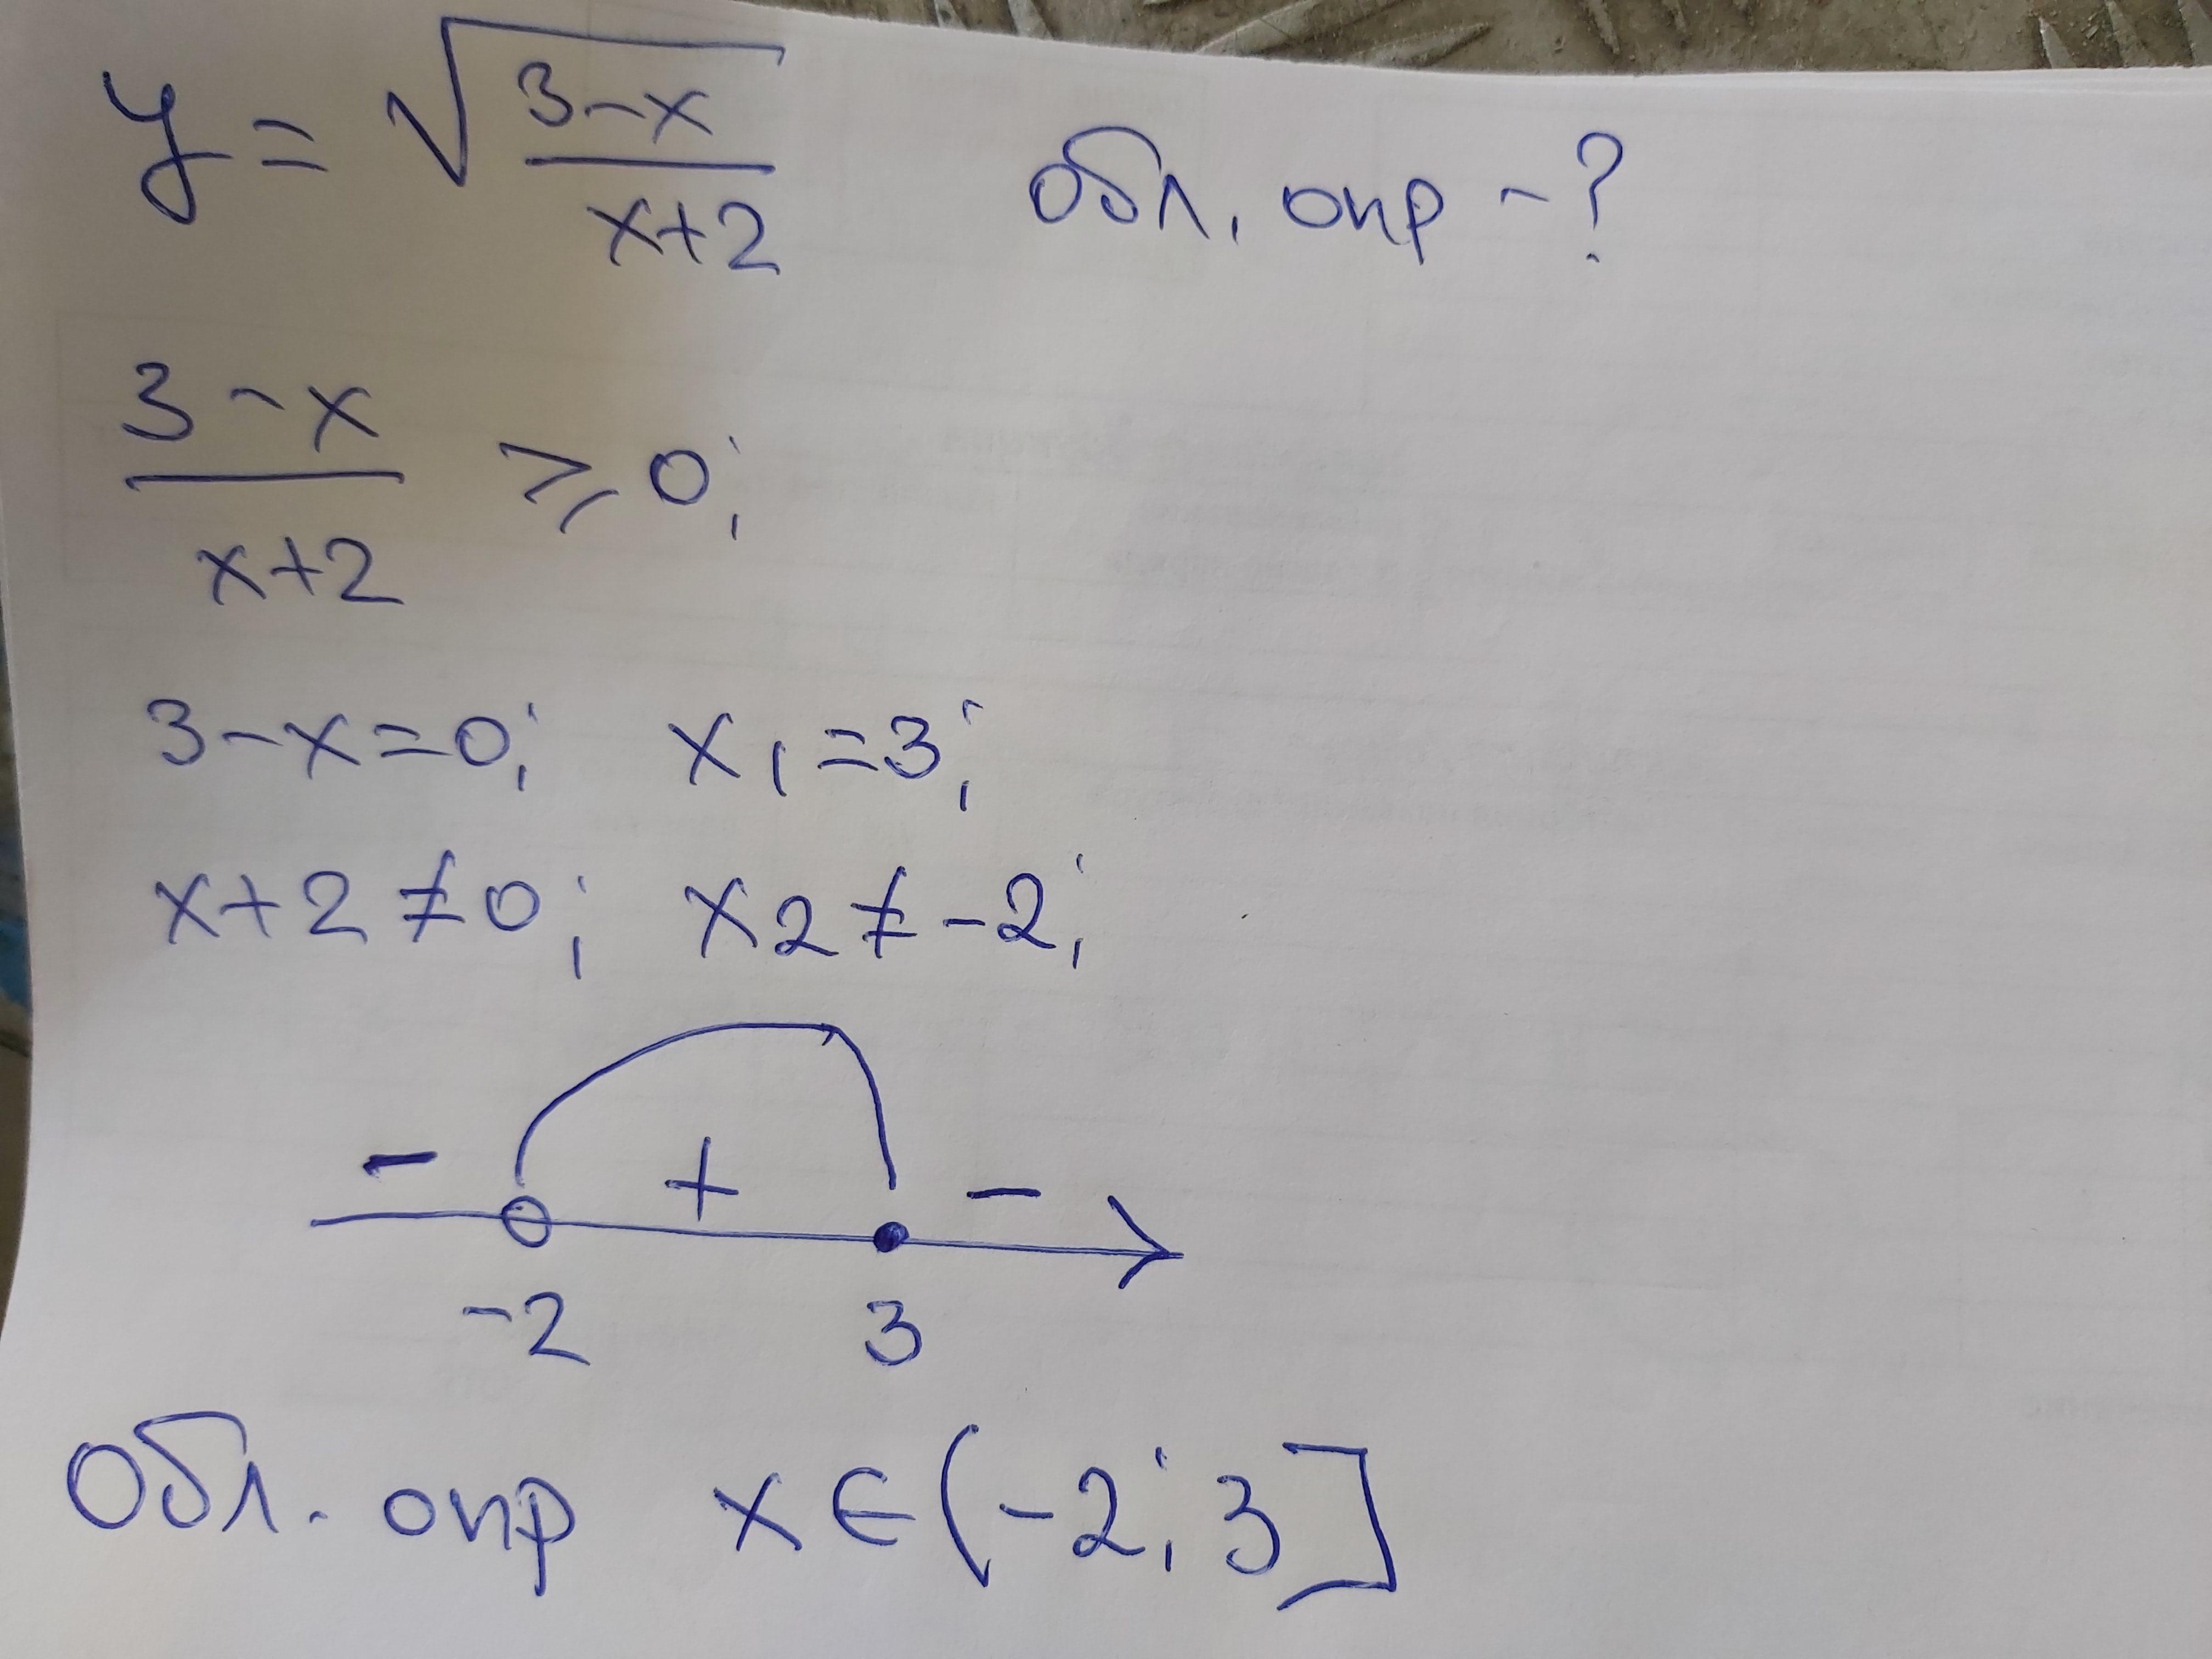 y = √((3-x)/(x+2)) обл. опр - ?
(3-x)/(x+2) ⩾ 0;
3-x=0; x₁=3;
x+2≠0; x₂≠-2;
- + -
-2 3
Обл. опр x∈(-2; 3]